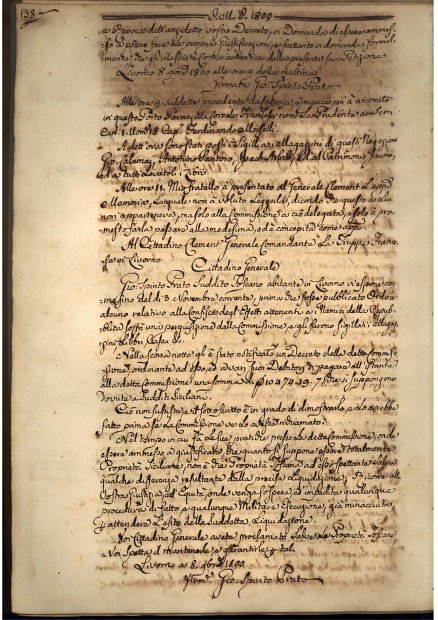 138
9.bre 1800
e Revoca dell'anzidetto vostro Decreto, in Domanda di essere ammes-
so a poter fare le proprie Giustificazioni, e frattanto in domanda formal-
mente, che gli rilasciate Copia autentica della presente sua Petizione
Livorno 8 9bre 1800 alle ore 9 della mattina
Firmato Gio. Spirito Prato
Alle ore 9 suddette procedente da
in questo Porto Corsale Francese nomato La Prudente arm. con
Can. 1. Uom. 18 Cap. Ferdinando
A dett'ora sono stati posti i Sigilli a i Magazzini di questi Negozianti
Gio. Calamai, Antonino Santoro, ed al Patrimonio
ed a tutti levatoli i Libri
Alle ore 11. Mio Fratello à presentato al Generale Clement la pre-
Memoria, la quale non à voluto leggerla, dicendo che questo a lui
non apparteneva, ma solo alla Commissione a ciò delegata, e solo è pro-
messo farla passare alla medesima, ed è concepita come appo
Al Cittadino Clement Generale Comandante Le Truppe France-
se in Livorno
Cittadino Generale
Gio: Spirito Prato Suddito Toscano abitante in Livorno vi espone co-
me fino del dì 3 Novembre corrente, prima che fosse pubblicato Ordine
alcuno relativo alla Confisca degli Effetti attenenti a i Nemici della Repub-
blica soffrì una perquisizione dalla Commissione e gli furono sigillati i Magaz-
zini Libbri Cassa &c.
Nella scorsa notte gli è stato notificato un Decreto della detta Commis-
sione, ordinante ad esso, ed a varj suoi Debitori di pagare all'Istante
alla detta Commissione una somma di che si suppongono
dovuta a Sudditi Siciliani.
Ciò non sussiste, e il sottoscritto è in grado di dimostrarlo, e lo avrebbe
fatto prima se la Commissione ve lo avesse richiamato.
Nel tempo in cui fa le sue preposte a detta Commissione, onde
essere ammesso a giustificare, che quanto si suppone essere totalmente
Proprietà Siciliane, non è che Proprietà Toscana ad esso spettante, salva
qualche differenza resultante dalla precisa Liquidazione; Ricorre alla
Vostra Giustizia, ed Equità, onde venga sospesa ed impedita qualunque
procedura di fatto e qualunque Militare Esecuzione, già minacciata
per attendere l'esito della suddetta Liquidazione.
Voi Cittadino Generale avete proclamato Salve le Proprietà Toscane
a Voi spetta il mantenerle e garantirle per tali
Livorno a 8. 9bre 1800.
Firmo. Gio Spirito Prato